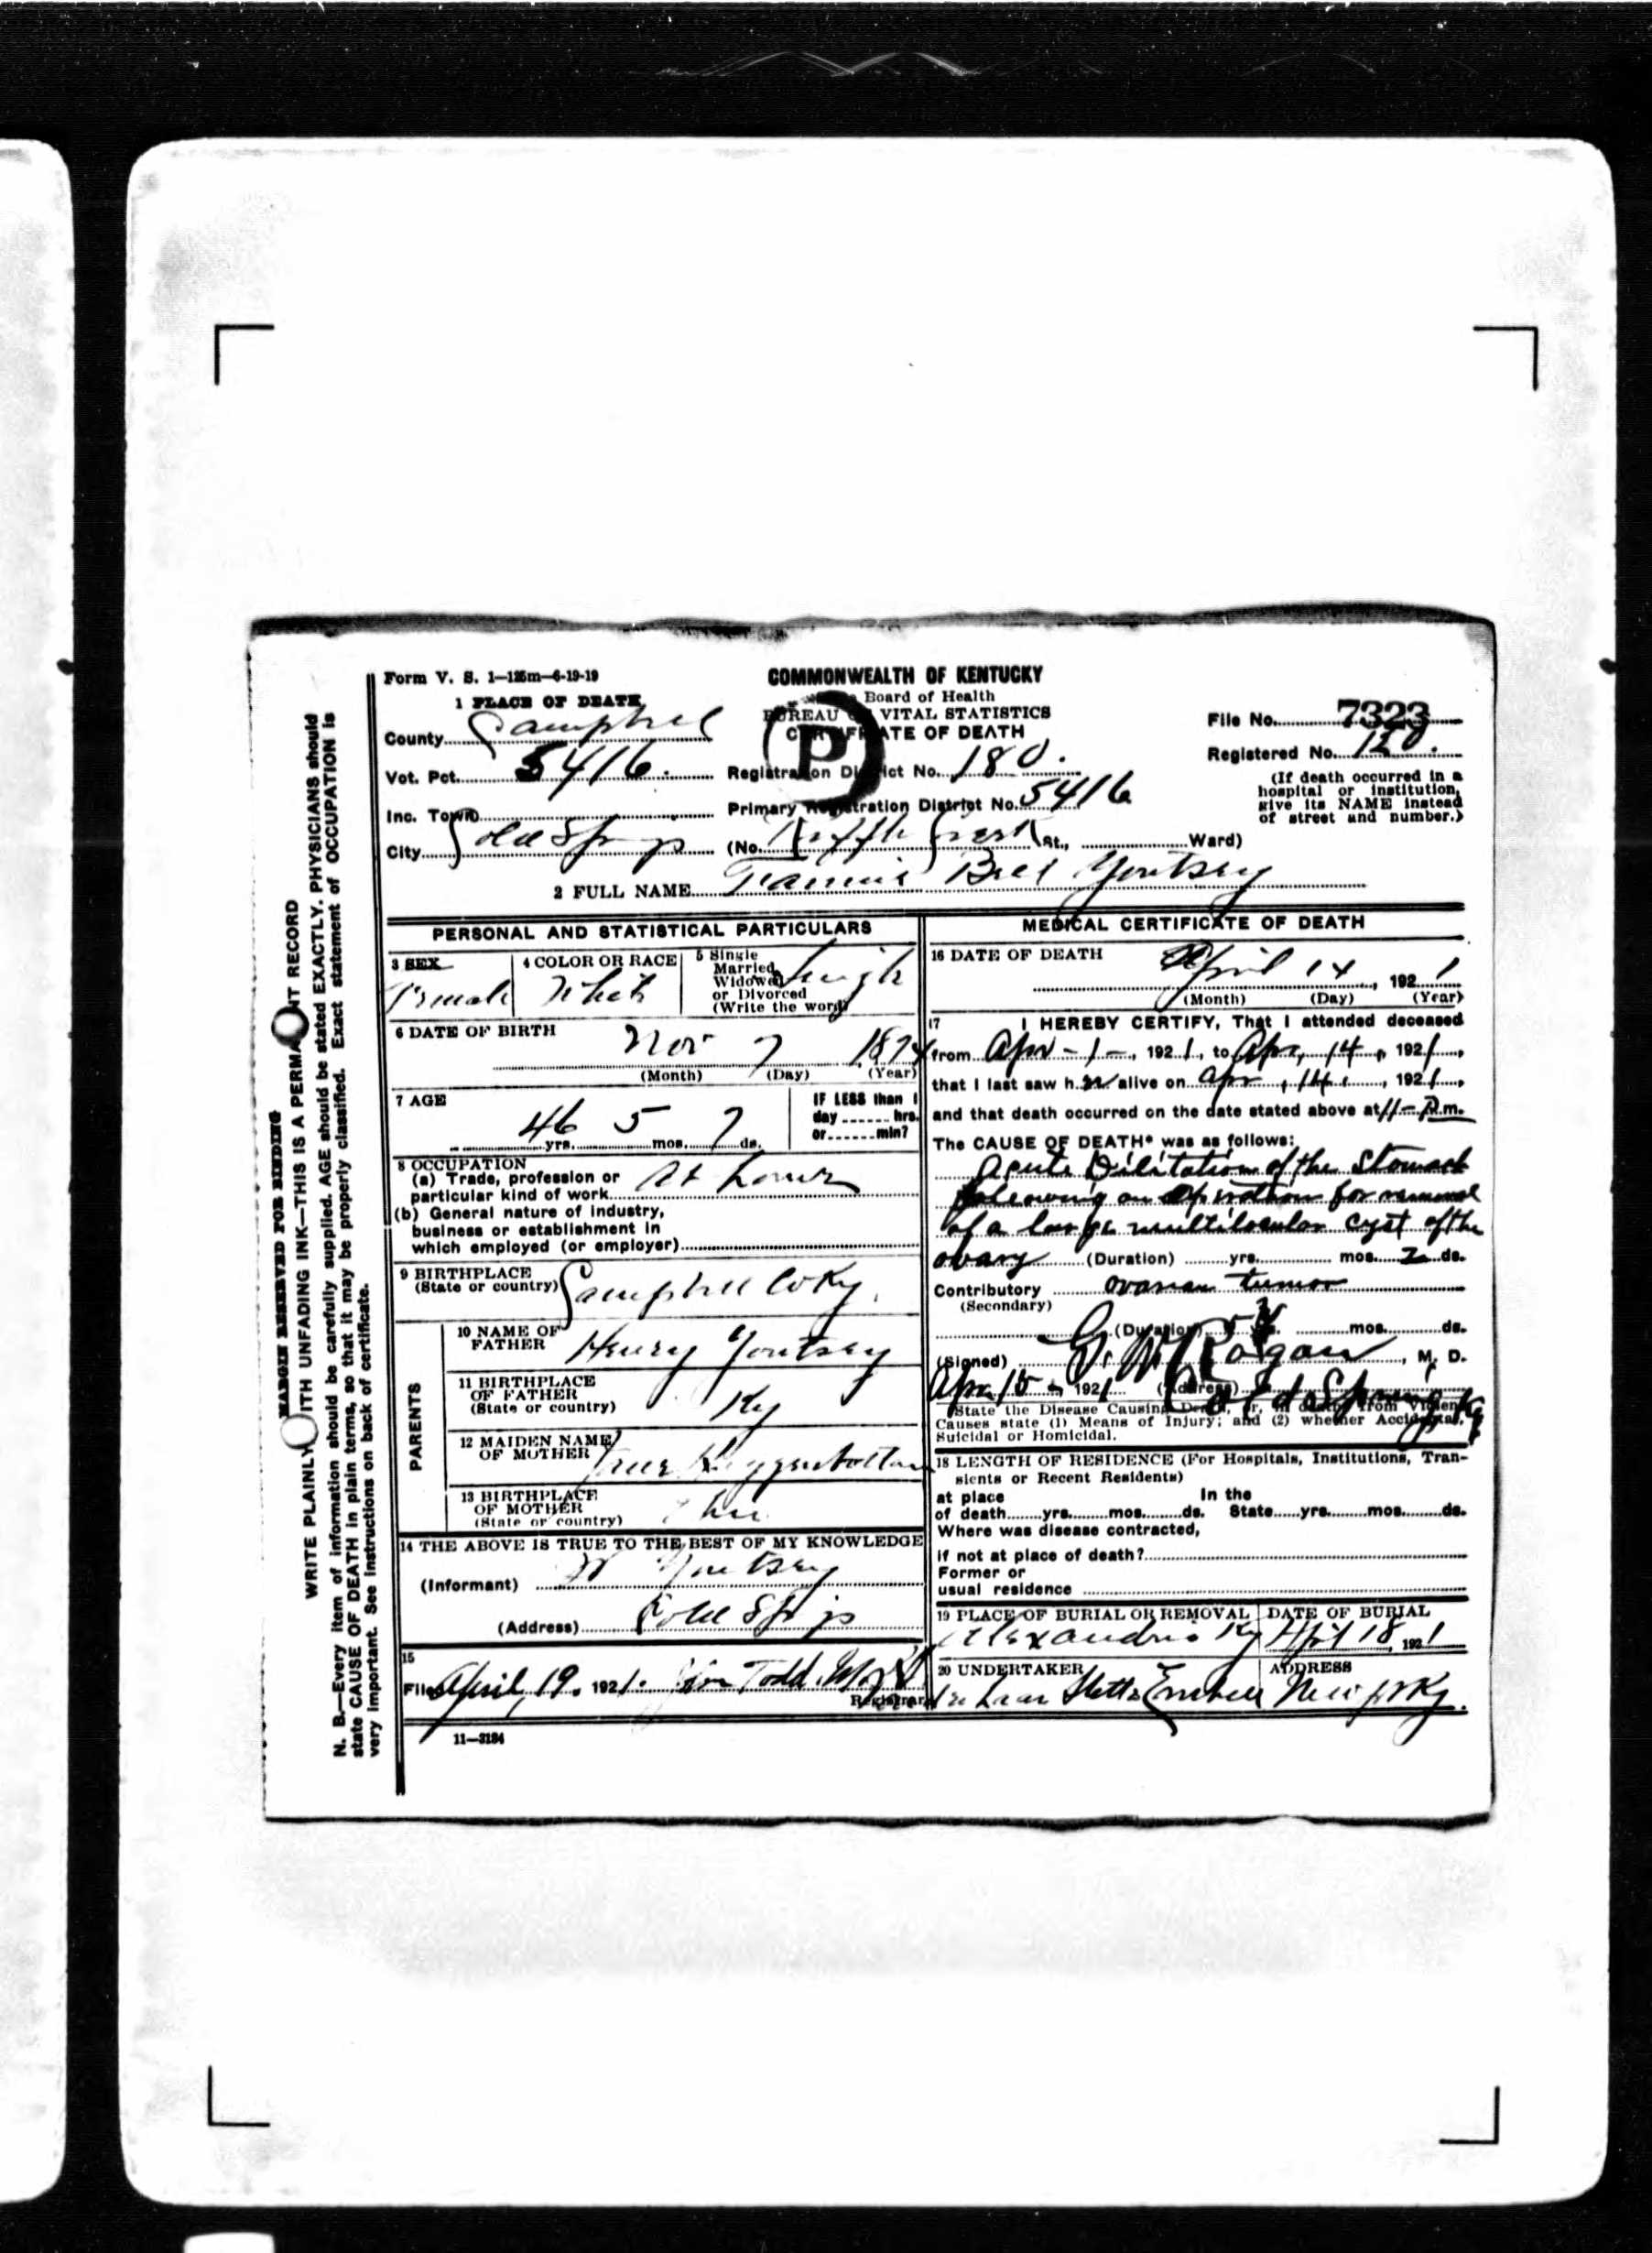 Form V. S. 1—125m—6-19-19
COMMONWEALTH OF KENTUCKY
Board of Health
BUREAU VITAL STATISTICS
CERTIFICATE OF DEATH
P
File No. 7323
Registered No. 120.
(If death occurred in a
hospital or institution,
give its NAME instead
of street and number.)
1 PLACE OF DEATH
County Campbell
Vot. Pct. 5416.
Registration District No. 180.
Inc. Town
Primary Registration District No. 5416
City Cold Springs
(No. St., Ward)
2 FULL NAME Fannie Bell Youtsey
PERSONAL AND STATISTICAL PARTICULARS
3 SEX
Female
4 COLOR OR RACE
White
5 Single
Married
Widowed
or Divorced
(Write the word)
Single
6 DATE OF BIRTH
Nov 7 1874
(Month) (Day) (Year)
7 AGE
46 yrs. 5 mos. 7 ds.
IF LESS than 1
day hrs.
or min?
8 OCCUPATION
(a) Trade, profession or
particular kind of work At home
(b) General nature of industry,
business or establishment in
which employed (or employer)
9 BIRTHPLACE
(State or country) Campbell Co Ky.
PARENTS
10 NAME OF
FATHER Henry Youtsey
11 BIRTHPLACE
OF FATHER
(State or country) Ky
12 MAIDEN NAME
OF MOTHER
13 BIRTHPLACE
OF MOTHER
(State or country)
14 THE ABOVE IS TRUE TO THE BEST OF MY KNOWLEDGE
(Informant) Youtsey
(Address) Cold Springs
15
Filed April, 19. 1921. Todd
Registrar
11—3184
MEDICAL CERTIFICATE OF DEATH
16 DATE OF DEATH
April 14, 1921
(Month) (Day) (Year)
17 I HEREBY CERTIFY, That I attended deceased
from Apr - 1 -, 1921, to Apr, 14, 1921,
that I last saw her alive on Apr, 14, 1921,
and that death occurred on the date stated above at 11 - P.m.
The CAUSE OF DEATH* was as follows:
Acute Dilitation of the Stomach
following an operation for removal
of a large multilocular cyst of the
ovary (Duration) yrs. mos. 2 ds.
Contributory ovarian tumor
(Secondary)
(Duration) mos. ds.
(Signed) G. W. Rogan, M. D.
Apr 15 - 1921 (Address) Cold Spring Ky
*State the Disease Causing Death, or, in deaths from Violent
Causes state (1) Means of Injury; and (2) whether Accidental,
Suicidal or Homicidal.
18 LENGTH OF RESIDENCE (For Hospitals, Institutions, Tran-
sients or Recent Residents)
at place In the
of death yrs. mos. ds. State yrs. mos. ds.
Where was disease contracted,
if not at place of death?
Former or
usual residence
19 PLACE OF BURIAL OR REMOVAL
Alexandria Ky
DATE OF BURIAL
April 18, 1921
20 UNDERTAKER
ADDRESS
Newport Ky.
MARGIN RESERVED FOR BINDING
WRITE PLAINLY WITH UNFADING INK—THIS IS A PERMANENT RECORD
N. B.—Every item of information should be carefully supplied. AGE should be stated EXACTLY. PHYSICIANS should
state CAUSE OF DEATH in plain terms, so that it may be properly classified. Exact statement of OCCUPATION is
very important. See instructions on back of certificate.